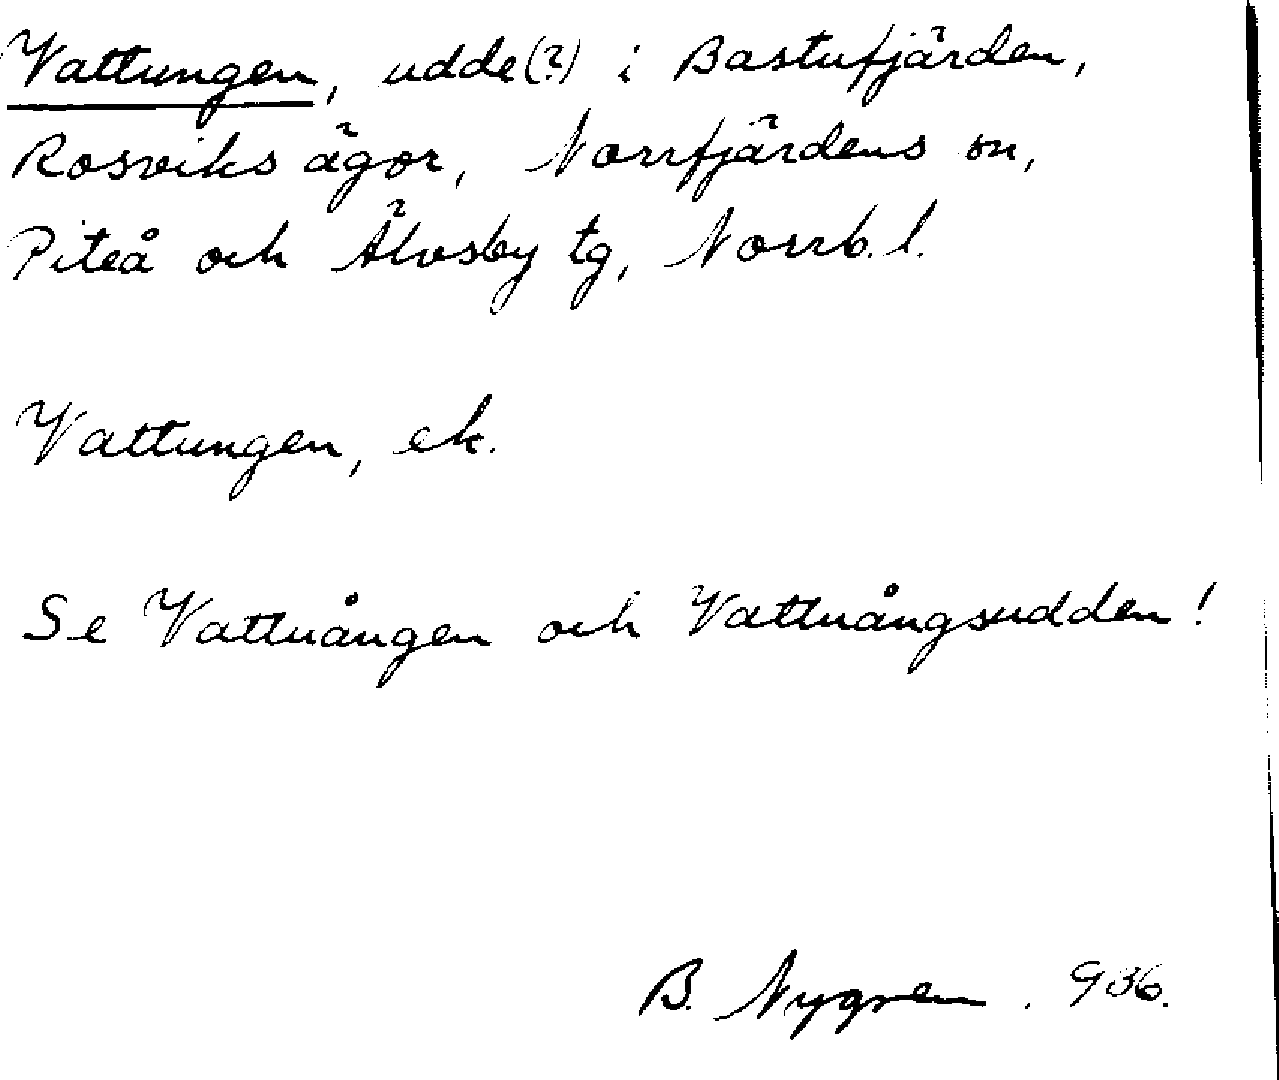 Vattungen, udde(?) i Bastufjärden,
Rosviks ägor, Norrfjärdens sn,
Piteå och Älvsby tg, Norrb. l.
Vattungen, ek.
Se Vattuången och Vattuångsudden!
B. Nygren. 936.